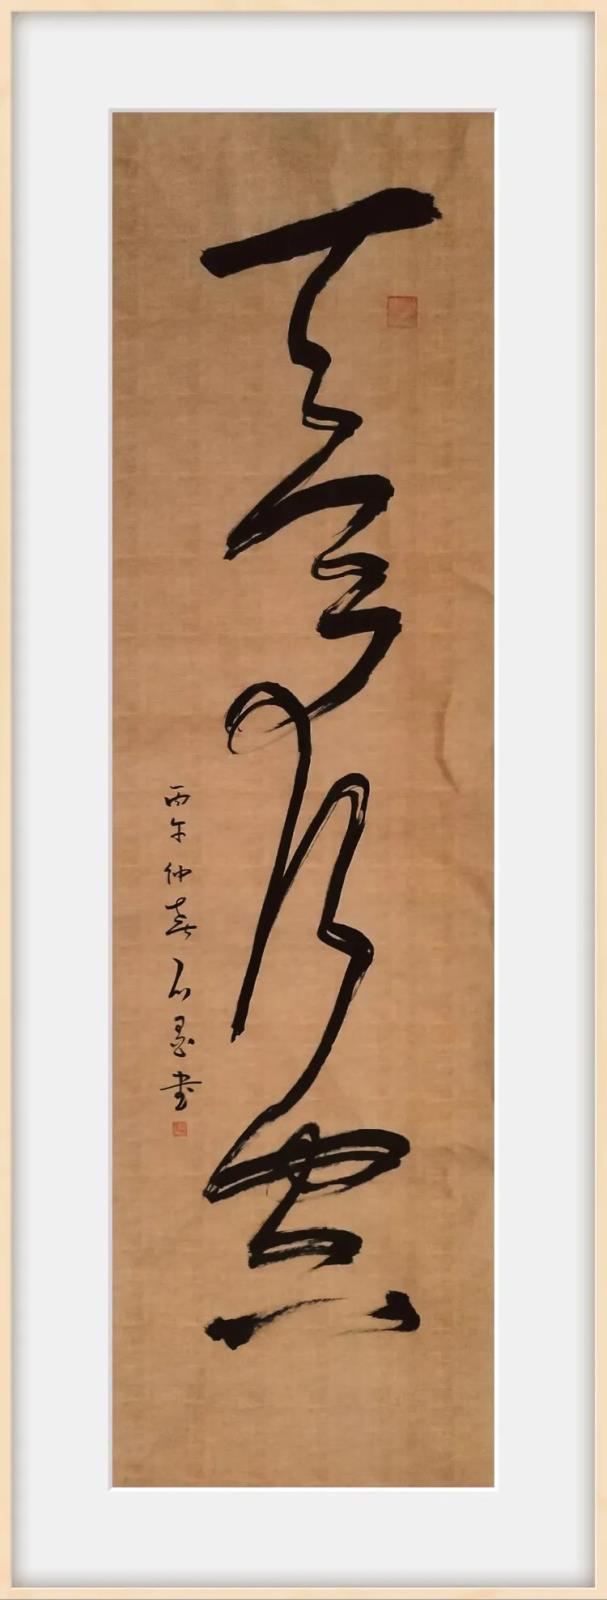 天馬行空
丙午仲春石墨書